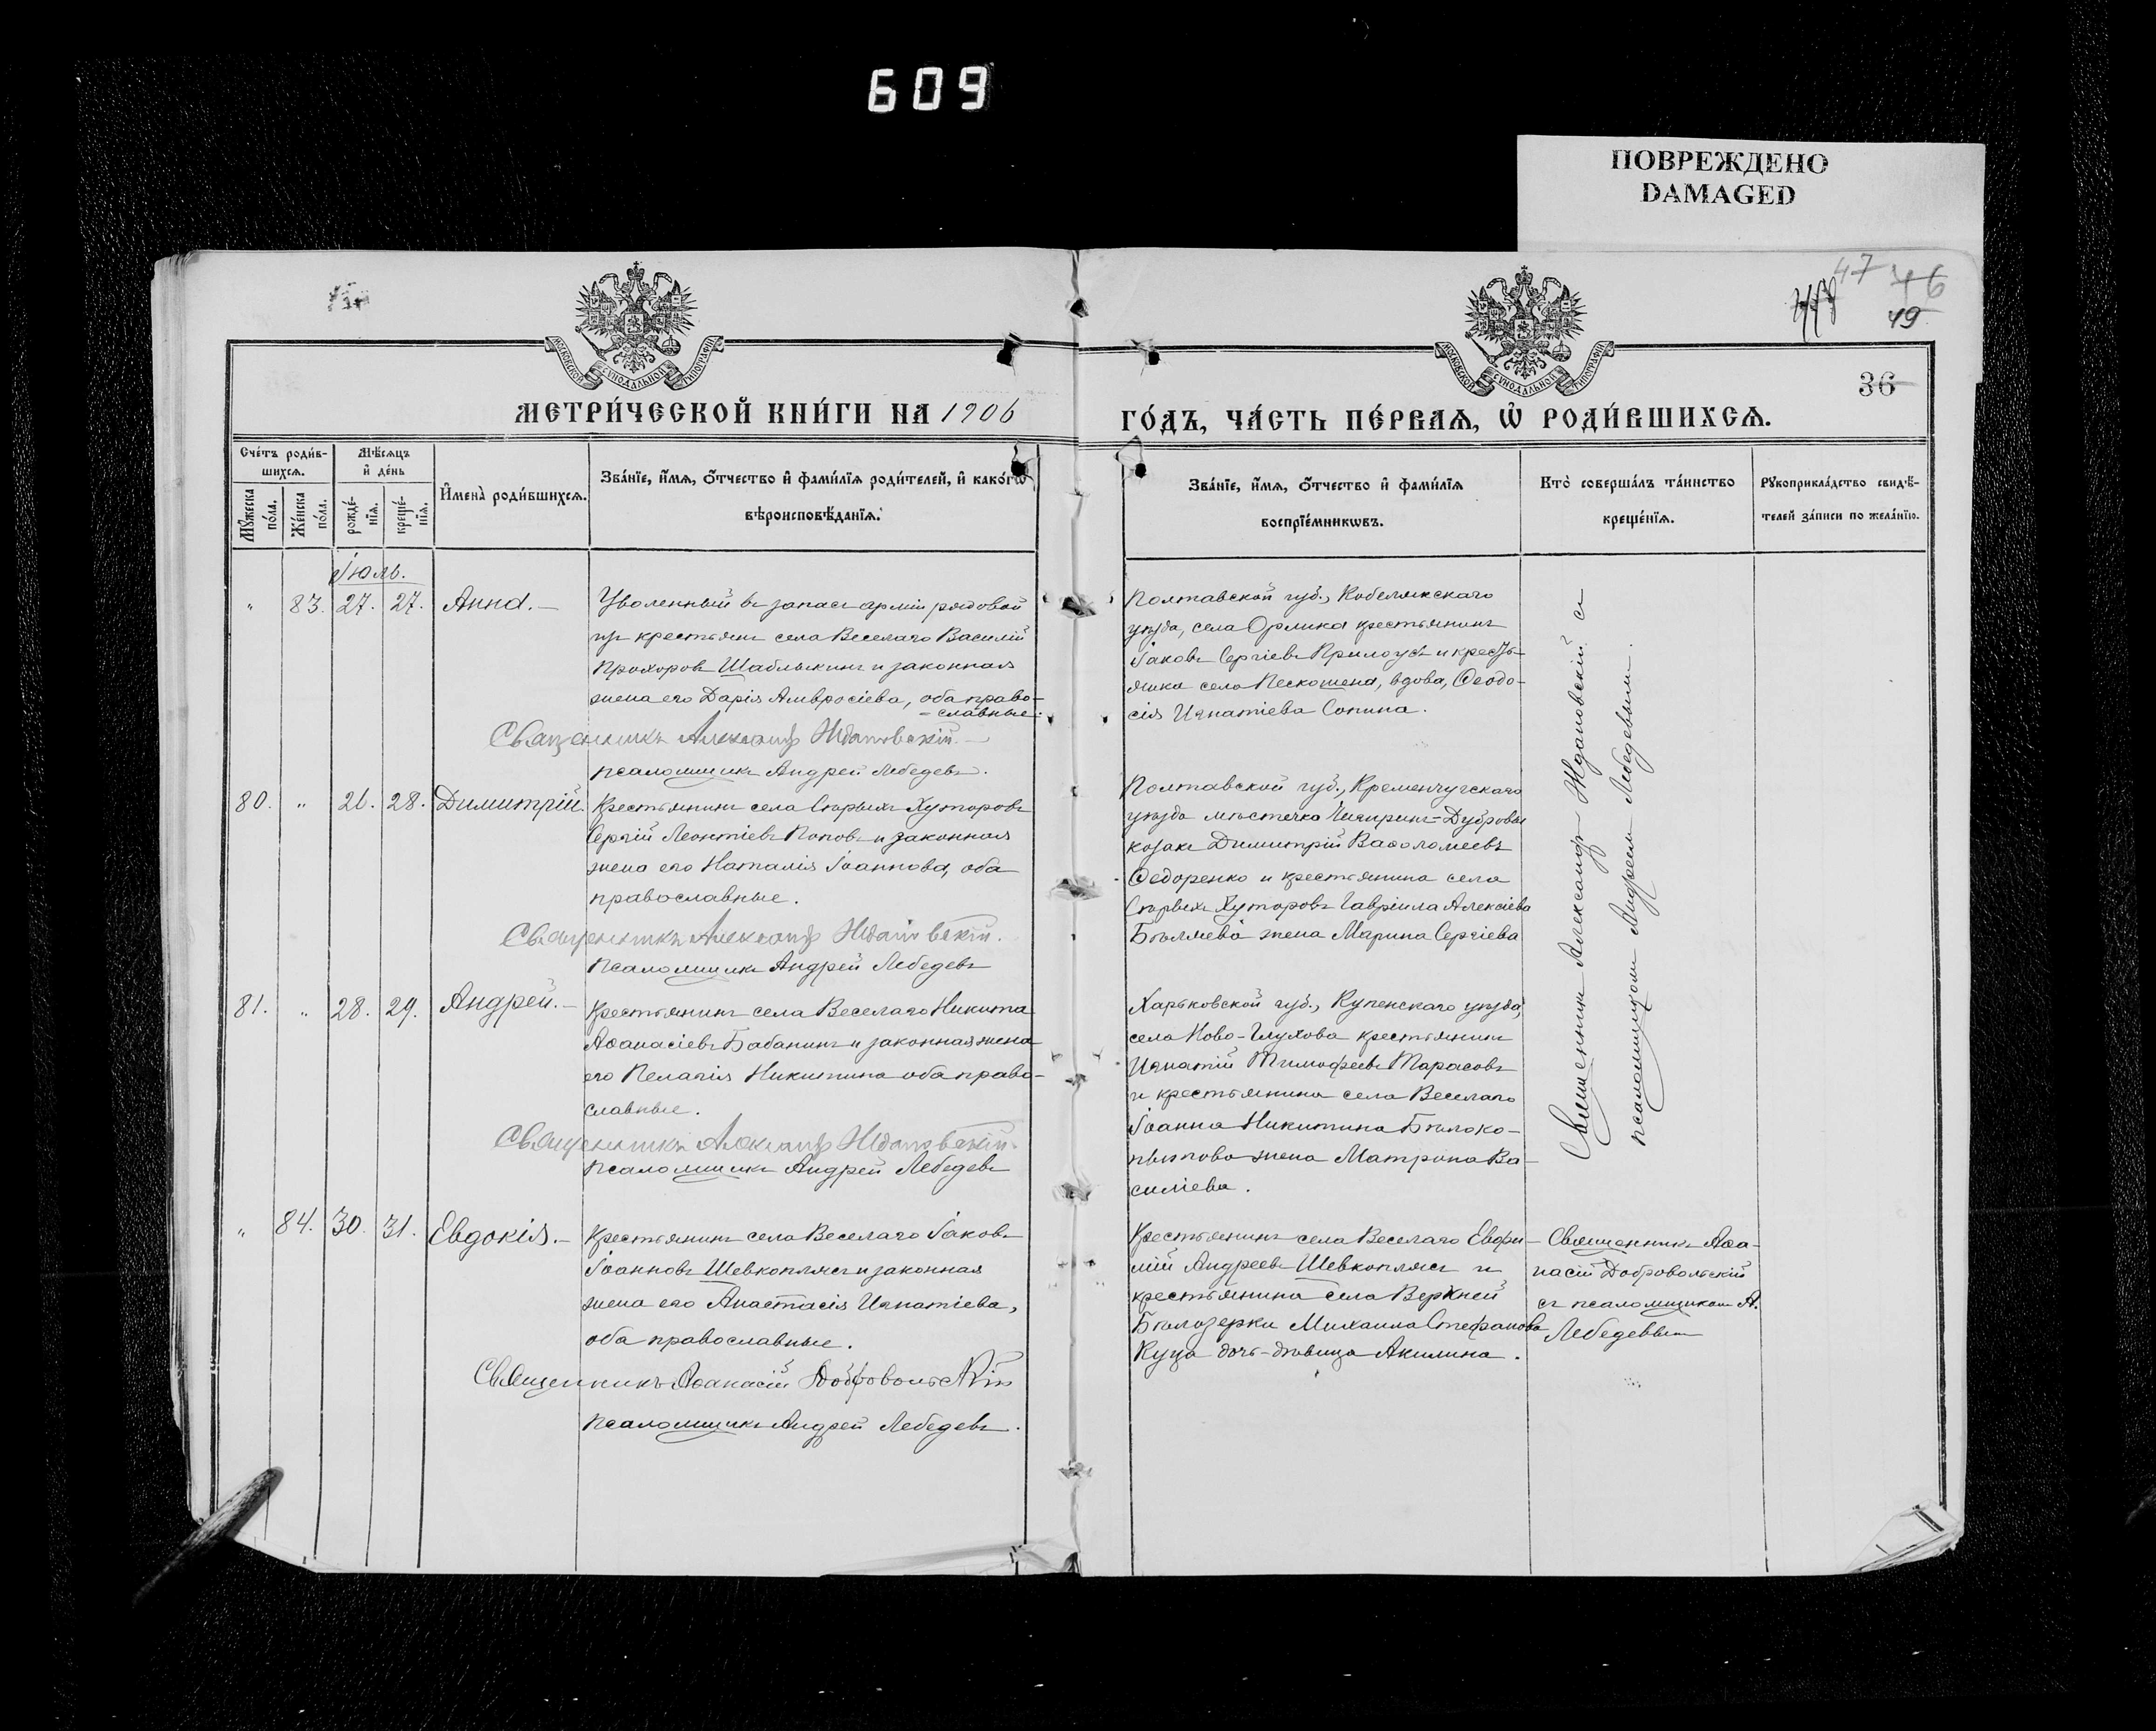 609
ПОВРЕЖДЕНО
DAMAGED
47 46
49
36
МОСКОВСКОЙ СУНОДАЛЬНОЙ ТИПОГРАФІИ
МОСКОВСКОЙ СУНОДАЛЬНОЙ ТИПОГРАФІИ
МЕТРИ́ЧЕСКОЙ КНИ́ГИ НА 1906
ГО́ДЪ, ЧА́СТЬ ПЕ́РВАѦ, Ѡ҆ РОДИ́ВШИХСѦ.
Сче́тъ роди́в-
шихсѧ.
Мꙋ́жеска
по́ла.
Же́нска
по́ла.
Мѣ́сѧцъ
и҆ де́нь
рожде́-
нїѧ.
креще́-
нїѧ.
И҆мена̀ роди́вшихсѧ.
Зва́нїе, и҆́мѧ, ѻ҆́тчество и҆ фами́лїѧ роди́телей, и҆ како́гѡ
вѣроисповѣ́данїѧ.
Зва́нїе, и҆́мѧ, ѻ҆́тчество и҆ фами́лїѧ
воспрїе́мникѡвъ.
Кто̀ соверша́лъ та́инство
креще́нїѧ.
Рꙋкоприкла́дство свидѣ́-
телей за́писи по жела́нїю.
Іюль.
" 83. 27. 27. Анна. —
Уволенный въ запасъ арміи рядовой
изъ крестьянъ села Веселаго Василій
Прохоровъ Шаблыкинъ и законная
жена его Дарія Амвросіева, оба право-
=славные.
Священникъ Александръ Ждановскій. —
псаломщикъ Андрей Лебедевъ.
Полтавской губ., Кобелякскаго
уѣзда, села Орлика крестьянинъ
Іаковъ Сергіевъ Прилоусъ и кресть-
янка села Пескошена, вдова, Ѳеодо-
сія Игнатіева Сопина.
Священникъ Александръ Ждановскій съ
псаломщикомъ Андреемъ Лебедевымъ.
80. " 26. 28. Димитрій.
Крестьянинъ села Старыхъ Хуторовъ
Сергій Леонтіевъ Поповъ и законная
жена его Наталія Іоаннова, оба
православные.
Священникъ Александръ Ждановскій.
Псаломщикъ Андрей Лебедевъ
Полтавской губ., Кременчугскаго
уѣзда мѣстечка Чигиринъ-Дубровы
козакъ Димитрій Варѳоломеевъ
Ѳедоренко и крестьянина села
Старыхъ Хуторовъ Гавріила Алексіева
Бѣляева жена Марина Сергіева
81. " 28. 29. Андрей. —
Крестьянинъ села Веселаго Никита
Аѳанасіевъ Бабанинъ и законная жена
его Пелагія Никитина оба право-
славные.
Священникъ Александръ Ждановскій.
псаломщикъ Андрей Лебедевъ
Харьковской губ., Купенскаго уѣзда,
села Ново-Глухова крестьянинъ
Игнатій Тимоѳеевъ Тарасовъ
и крестьянина села Веселаго
Іоанна Никитина Бѣлоко-
пытова жена Матрона Ва-
силіева.
" 84. 30. 31. Евдокія. —
Крестьянинъ села Веселаго Іаковъ
Іоанновъ Шевкоплясъ и законная
жена его Анастасія Игнатіева,
оба православные.
Священникъ Аѳанасій Добровольскій
псаломщикъ Андрей Лебедевъ.
Крестьянинъ села Веселаго Евѳи-
мій Андреевъ Шевкоплясъ и
крестьянина села Верхней
Бѣлозерки Михаила Стефанова
Куца дочь-дѣвица Акилина.
Священникъ Аѳа-
насій Добровольскій
съ псаломщикомъ А.
Лебедевымъ